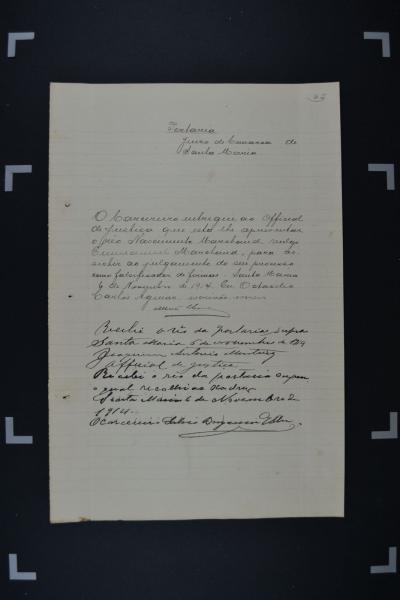 Portaria
Juizo de Comarca de
Santa Maria
O Carcereiro entregue ao Official
de Justiça que esta lhe apresentar
o reo Nascimento Marchand vulgo
Emmanuel Marchand, para as-
sistir ao julgamento do seu processo
como falsificador de firmas. Santa Maria
6 de Novembro de 1914. Eu Octacilio
Carlos Aguiar, escrivão
Recebi o réo da portaria supra
Santa Maria 6 de novembro de 1914
Joaquim Antonio
Official de justiça
Recebi o réo da portaria supra
o qual recolhi ao xadrez
Santa Maria 6 de Novembro de
1914
O carcereiro